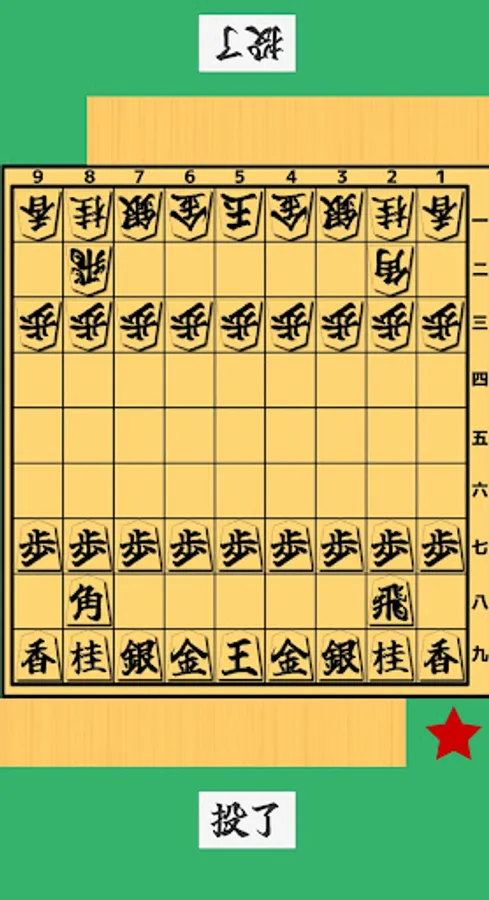 投了
9 8 7 6 5 4 3 2 1
香 桂 銀 金 玉 金 銀 桂 香 一
飛 角 二
歩 歩 歩 歩 歩 歩 歩 歩 歩 三
四
五
六
歩 歩 歩 歩 歩 歩 歩 歩 歩 七
角 飛 八
香 桂 銀 金 王 金 銀 桂 香 九
投了